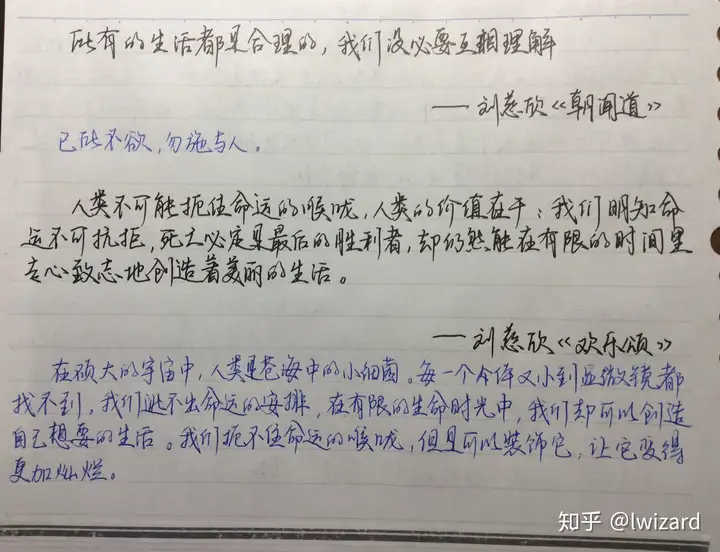 所有的生活都是合理的，我们没必要互相理解
——刘慈欣《朝闻道》
己所不欲，勿施与人。
人类不可能扼住命运的喉咙，人类的价值在于：我们明知命
运不可抗拒，死亡必定是最后的胜利者，却仍然能在有限的时间里
专心致志地创造着美丽的生活。
——刘慈欣《欢乐颂》
在硕大的宇宙中，人类是苍海中的小细菌。每一个个体又小到显微镜都
找不到，我们逃不出命运的安排，在有限的生命时光中，我们却可以创造
自己想要的生活。我们扼不住命运的喉咙，但是可以装饰它，让它变得
更加灿烂。
知乎 @lwizard